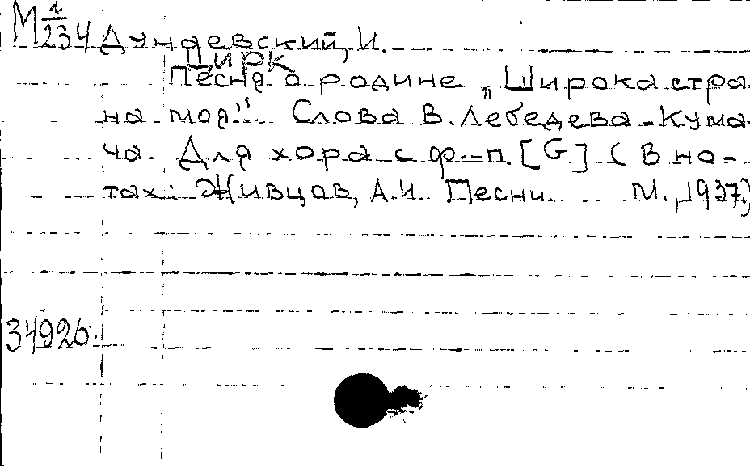 М 1/234 Дунаевский, И.
Цирк
Песня о родине „Широка стра
на моя". Слова В. Лебедева-Кума
ча. Для хора с ф-п. [G] (В но-
тах: Живцов, А.И. Песни М., 1937)
34926